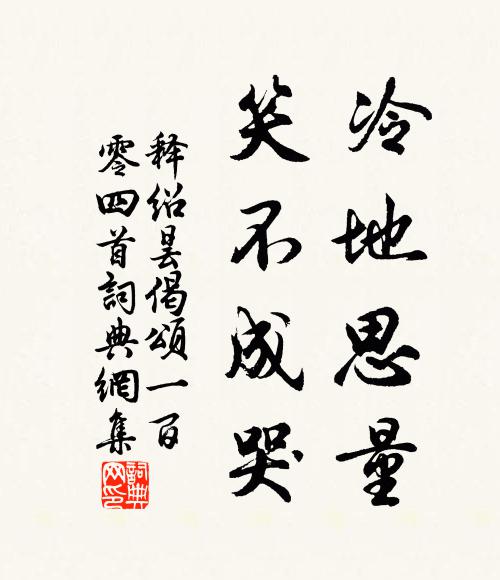 冷地思量
笑不成哭
释绍昙偈頌一百
零四首詞典網集
詞典
网印